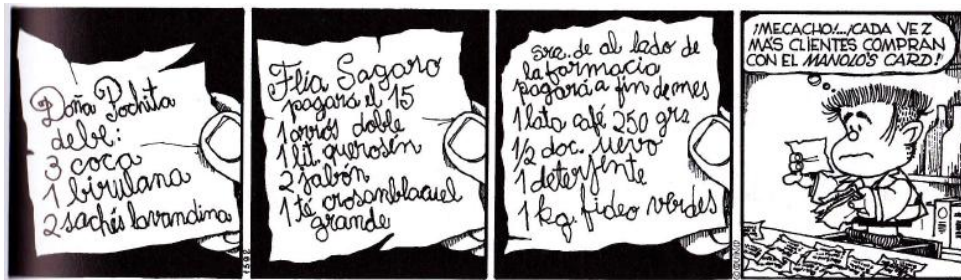 Doña Pochita
debe:
3 coca
1 birulana
2 sachés lavandina
Flia Sagaro
pagará el 15
1 arrós doble
1 lit. querosén
2 jabón
1 té crosanblacuel
grande
sra. de al lado de
la farmacia
pagará a fin de mes
1 lata café 250 grs
1/2 doc. uevo
1 deterjente
1 kg. fideo verdes
¡MECACHO!...¡CADA VEZ
MÁS CLIENTES COMPRAN
CON EL MANOLO'S CARD!